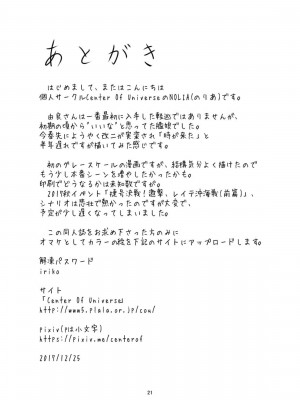 あとがき
はじめまして、またはこんにちは
個人サークルCenter Of UniverseのNOLIA(のりあ)です。
由良さんは一番最初に入手した軽巡ではありませんが、
初期の頃から"いいな"と思ってた艦娘でした。
今春先にようやく改二が実装され「時が来た」と
半年遅れですが描いてみた感じです。
初のグレースケールの漫画ですが、結構気分よく描けたので
もう少し本番シーンを増やしたかったかも。
印刷でどうなるかは未知数ですが。
2017秋イベント「捷号決戦!邀撃、レイテ沖海戦(前篇)」、
シナリオは悲壮で熱かったのですが大変で、
予定が少し遅くなってしまいました。
この同人誌をお求め下さった方のみに
オマケとしてカラーの絵を下記のサイトにアップロードします。
解凍パスワード
iriko
サイト
「Center Of Universe」
http://www5.plala.or.jp/cou/
pixiv(Pは小文字)
http://pixiv.me/centerof
2017/12/25
21